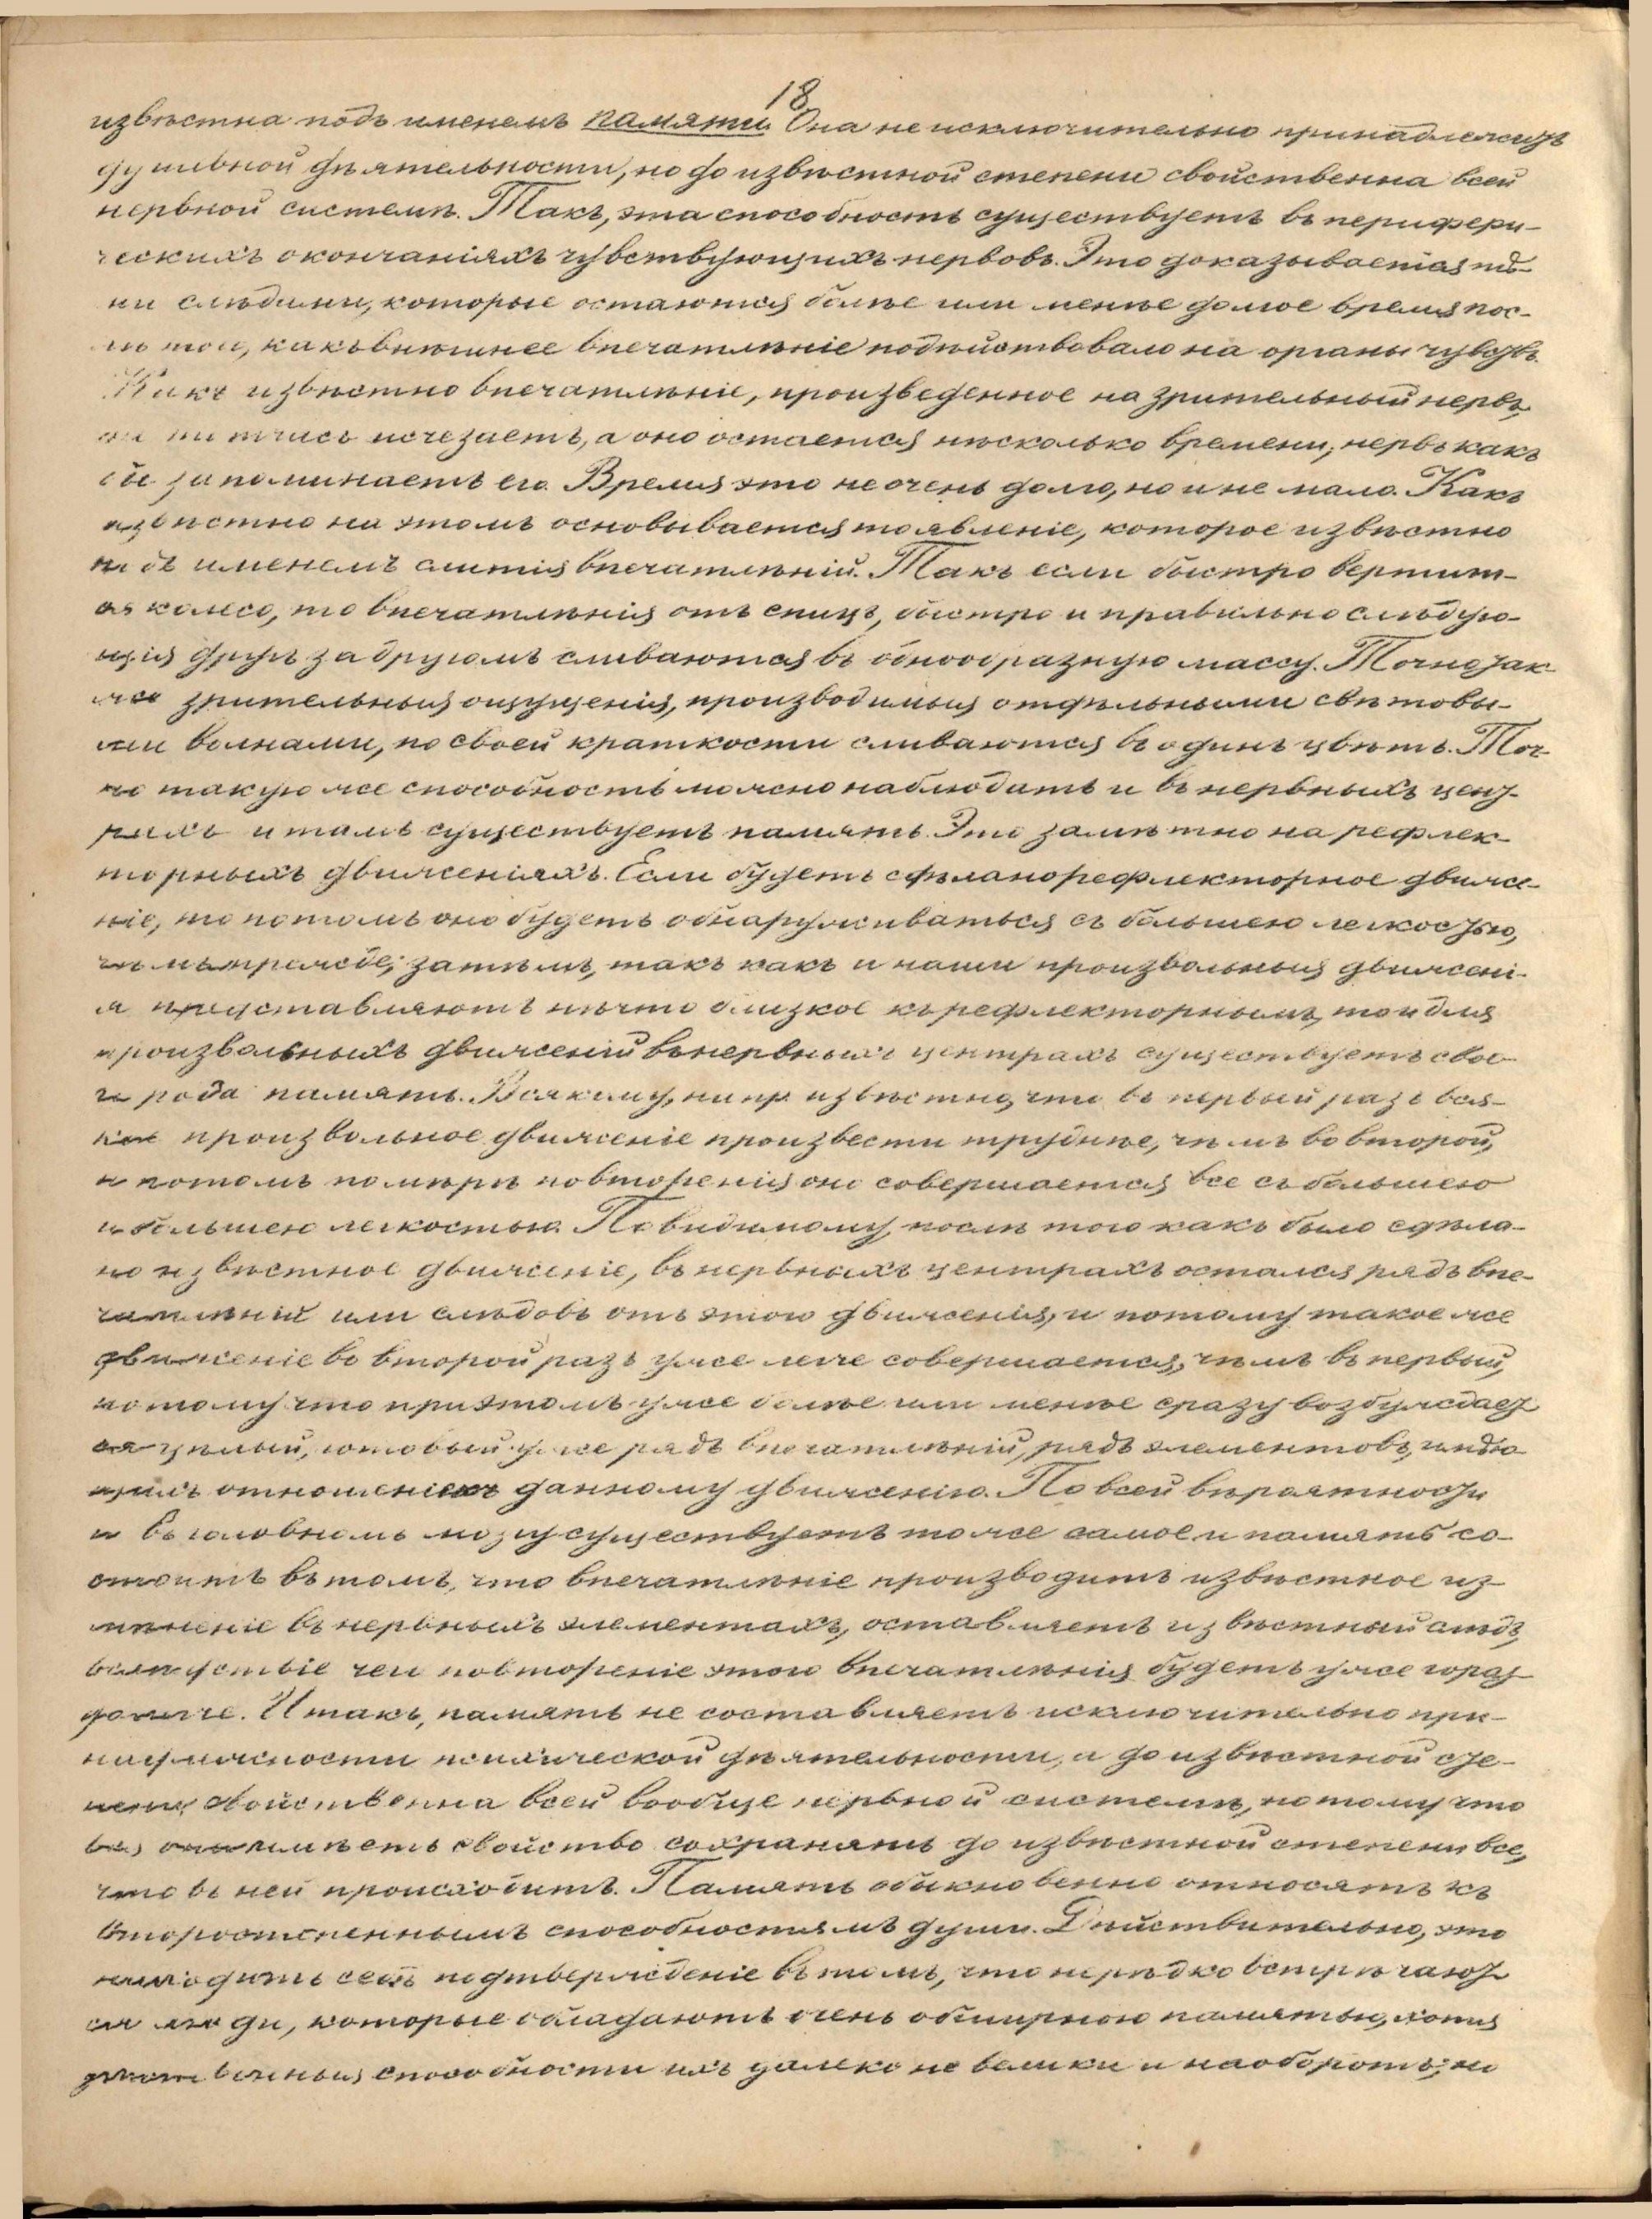 18
извѣстна подъ именемъ памяти. Она не исключительно принадлежитъ
душевной дѣятельности, но до извѣстной степени свойственна всей
нервной системѣ. Такъ, эта способность существуетъ въ перифери-
ческихъ окончаніяхъ чувствующихъ нервовъ. Это доказывается тѣ-
ми слѣдами, которые остаются болѣе или менѣе долгое время пос-
лѣ того, какъ внѣшнее впечатлѣніе подѣйствовало на органы чувствъ.
Какъ извѣстно впечатлѣніе, произведенное на зрительный нервъ,
не тотчасъ исчезаетъ, а оно остается нѣсколько времени; нервъ какъ
бы запоминаетъ его. Время это не очень долго, но и не мало. Какъ
извѣстно на этомъ основывается то явленіе, которое извѣстно
подъ именемъ слитія впечатлѣній. Такъ если быстро вертит-
ся колесо, то впечатлѣнія отъ спицъ, быстро и правильно слѣдую-
щія другъ за другомъ сливаются въ однообразную массу. Точно так
же зрительныя ощущенія, производимыя отдѣльными свѣтовы-
ми волнами, по своей краткости сливаются въ одинъ цвѣтъ. Точ-
но такую же способность можно наблюдать и въ нервныхъ цент-
рахъ и тамъ существуетъ память. Это замѣтно на рефлек-
торныхъ движеніяхъ. Если будетъ сдѣлано рефлекторное движе-
ніе, то потомъ оно будетъ обнаруживаться съ большею легкостью,
чѣмъ прежде; затѣмъ, такъ какъ и наши произвольныя движені-
я представляютъ нѣчто близкое къ рефлекторнымъ, то и для
произвольныхъ движеній въ нервныхъ центрахъ существуетъ свое-
го рода память. Всякому, напр. извѣстно, что въ первый разъ вся-
кое произвольное движеніе произвести труднѣе, чѣмъ во второй,
и потомъ по мѣрѣ повторенія оно совершается все съ большею
и большею легкостью. Повидимому, послѣ того какъ было сдѣла-
но извѣстное движеніе, въ нервныхъ центрахъ остался рядъ впе-
чатлѣній или слѣдовъ отъ этого движенія, и потому такое же
движеніе во второй разъ уже легче совершается, чѣмъ въ первый,
потому что при этомъ уже болѣе или менѣе сразу возбуждает
ся цѣлый, готовый уже рядъ впечатлѣній, рядъ элементовъ, имѣю-
щихъ отношеніе къ данному движенію. По всей вѣроятности
и въ головномъ мозгу существуетъ то же самое и память со-
стоитъ въ томъ, что впечатлѣніе производитъ извѣстное из-
мѣненіе въ нервныхъ элементахъ, оставляетъ извѣстный слѣдъ,
вслѣдствіе чего повтореніе этого впечатлѣнія будетъ уже гораз-
до легче. Итакъ, память не составляетъ исключительно при-
надлежности психической дѣятельности, а до извѣстной сте-
пени свойственна всей вообще нервной системѣ, потому что
вся она имѣетъ свойство сохранять до извѣстной степени все,
что въ ней происходитъ. Память обыкновенно относятъ къ
второстепеннымъ способностямъ души. Дѣйствительно, это
находитъ себѣ подтвержденіе въ томъ, что нерѣдко встрѣчают
ся люди, которые обладаютъ очень обширною памятью, хотя
умственныя способности ихъ далеко не велики и наоборотъ; но